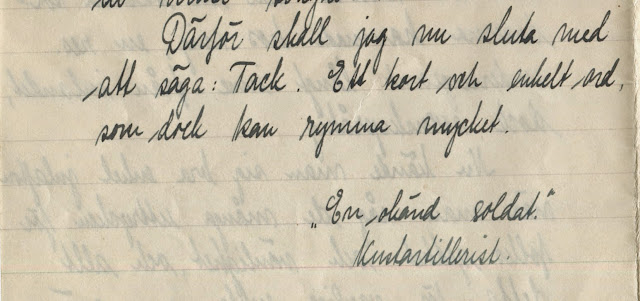 Därför skall jag nu sluta med
att säga: Tack. Ett kort och enkelt ord,
som dock kan rymma mycket.
„En okänd soldat."
Kustartillerist.